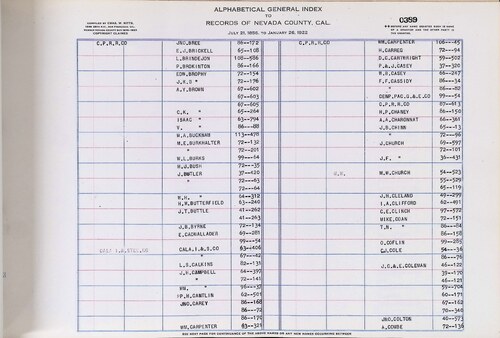 ALPHABETICAL GENERAL INDEX
TO
RECORDS OF NEVADA COUNTY, CAL.
JULY 21, 1856, TO JANUARY 26, 1922
0389
COPYRIGHT CLAIMED
C.P.R.R.CO JNO.BREE 86--172 C.P.R.R.CO 106--45
E.J.BRICKELL 65--108 H.CARREG 72--94
L.BRINDEJON 108--586 D.C.CARTWRIGHT 59--502
P.BROKINTON 86--166 F.A.J.CASEY 37--320
EDW.BROPHY 72--154 R.R.CASEY 66--247
J.K.S " 72--176 F.F.CASSIDY 86--34
A.Y.BROWN 67--602 " 86--82
67--603 CENT.PAC.G.&E.CO 99--54
67--605 C.P.R.R.CO 67--613
C.R. " 65--264 H.P.CHANEY 86--150
ISAAC " 63--794 A.A.CHARONNAT 66--361
Y. " 86--88 J.S.CHINN 65--13
W.A.BUCKNAM 113--478 " 72--96
M.E.BURKHALTER 72--132 J.CHURCH 69--597
" 72--201 72--101
W.L.BURKS 99--64 J.F. " 36--431
H.J.BUSH 72--35
J.BUTLER 37--420 W.W.CHURCH 54--523
" 72--63 55--529
72--64 65--119
W.H. " 64--312 J.H.CLELAND 49--299
H.W.BUTTERFIELD 63--240 I.A.CLIFFORD 62--491
J.T.BUTTLE 41--262 C.E.CLINCH 97--572
41--263 MIKE.COAN 72--151
J.B.BYRNE 72--134 T.N. " 86--84
E.CADALLADER 69--281 86--158
99--54 O.COFLIN 99--285
CALA.I.&S.CO 63--406 C.J.COLE 54--36
" 67--42 86--76
L.S.CALKINS 82--131 J.C.&E.COLEMAN 46--122
J.R.CAMPBELL 64--397 39--170
" 72--141 46--121
WM. " 96--37 46--170
P.M.CANTLIN 62--501 60--171
JNO.CAREY 86--168 67--162
86--172 70--340
86--170 JNO.COLTON 48--573
WM.CARPENTER 63--321 A.COMBE 72--136